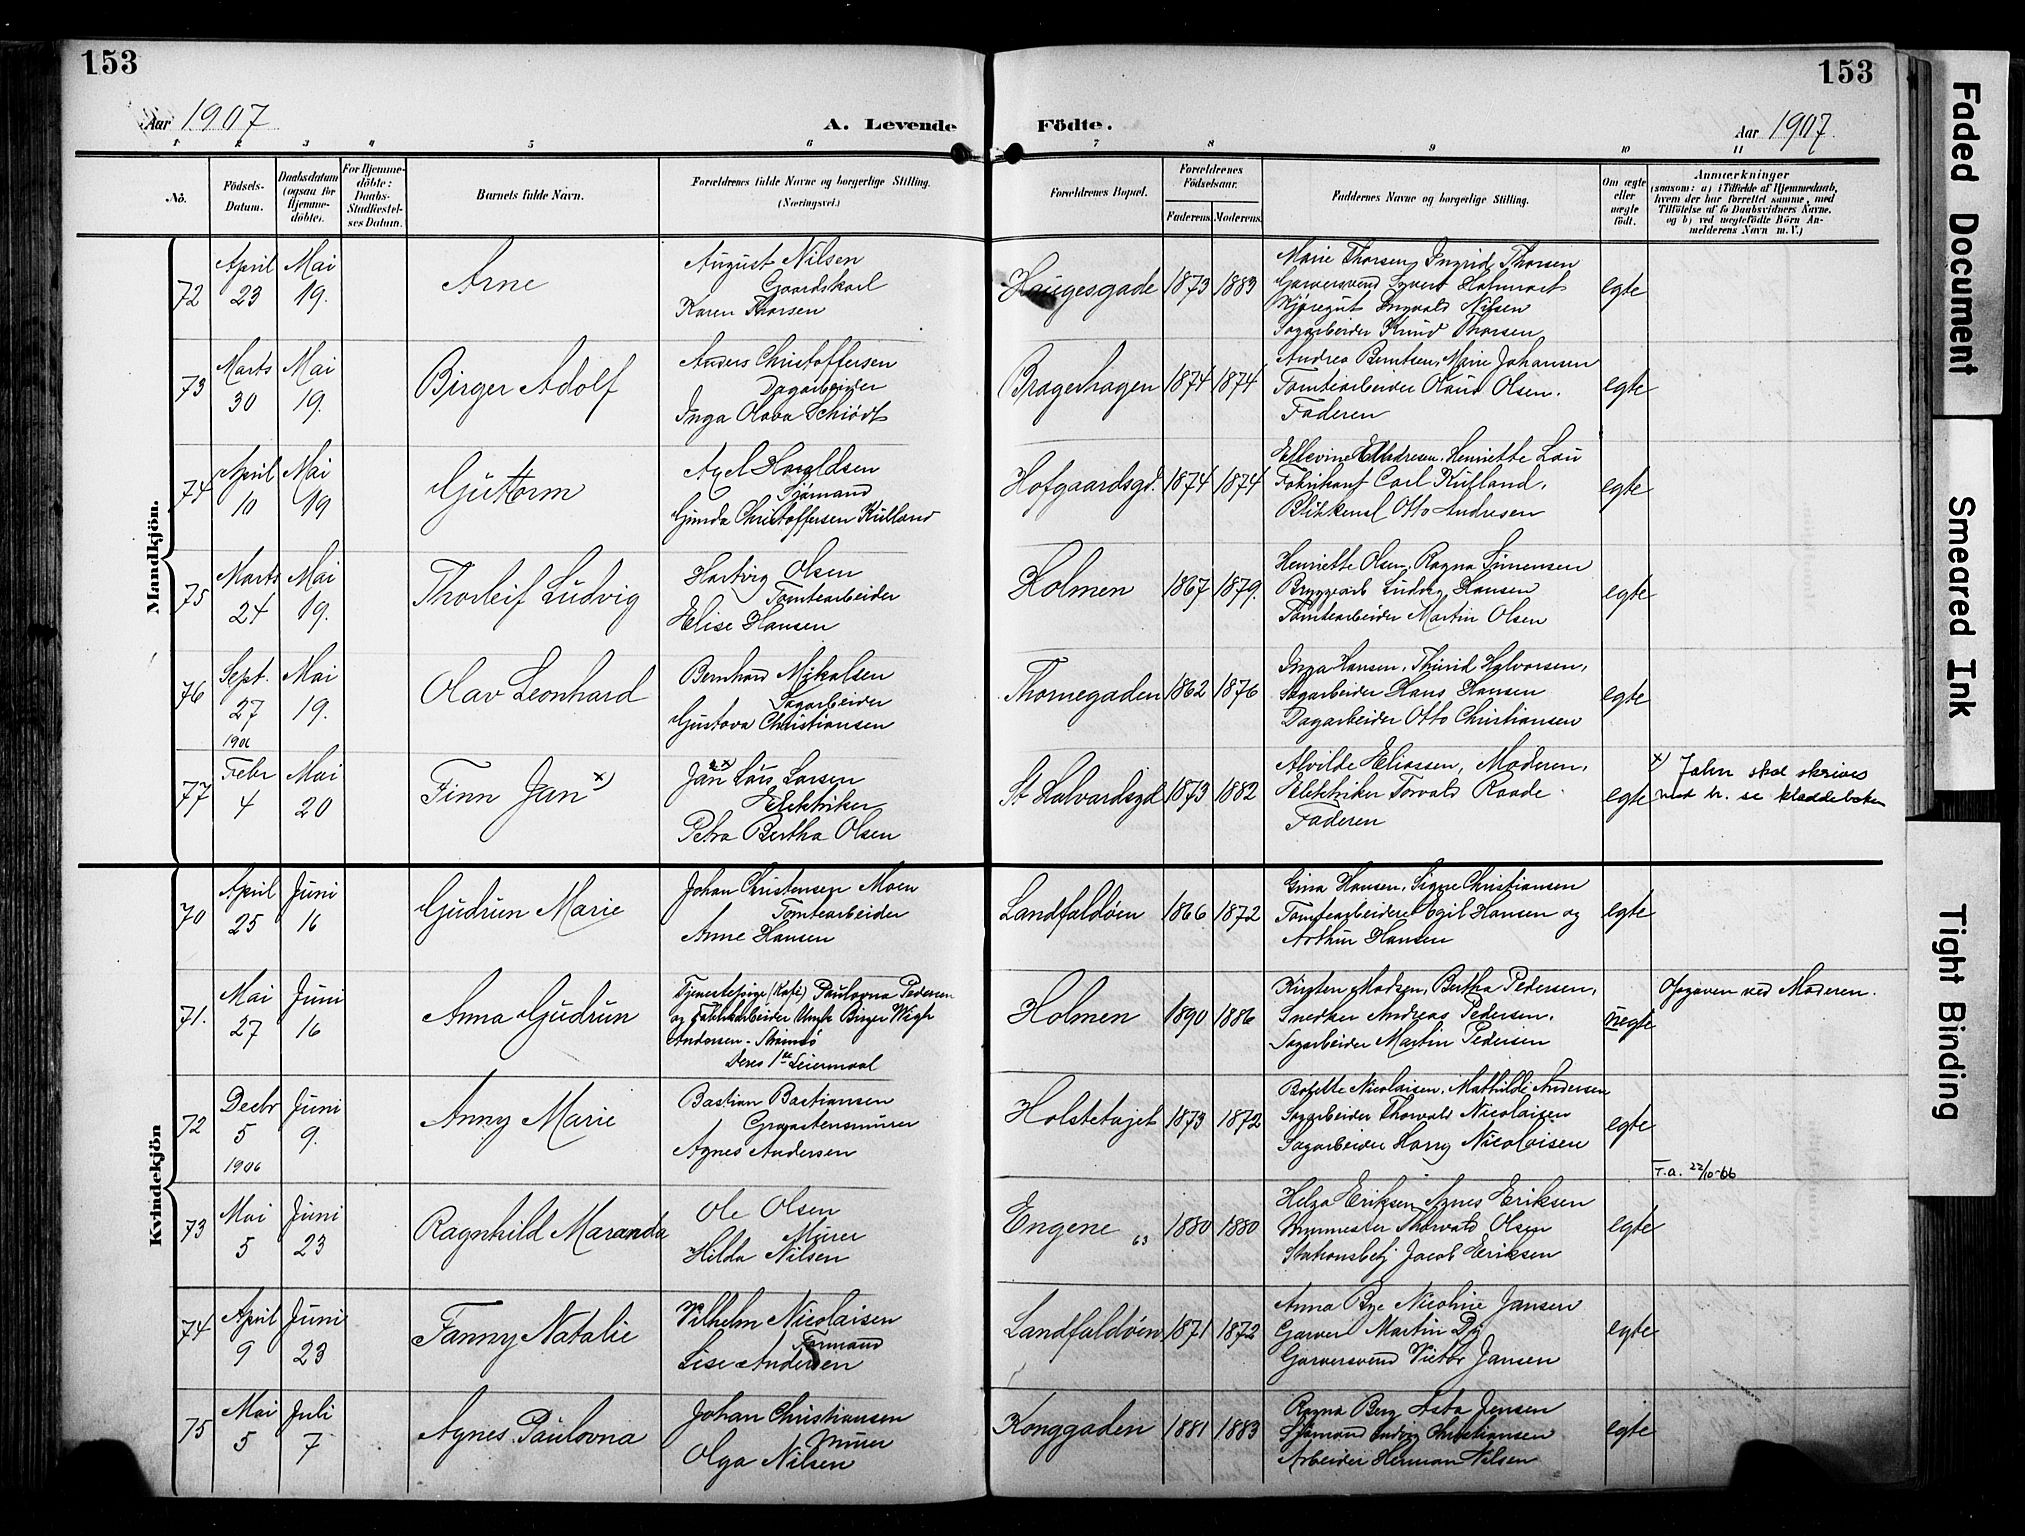 153
153
Aar 1907
A. Levende Födte.
Aar 1907.
1 2 3 4 5 6 7 8 9 10 11
No.
Födsels-
Datum.
Daabsdatum
(ogsaa for
Hjemme-
döbte).
For Hjemme-
döbte:
Daabs-
Stadfæstel-
ses Datum.
Barnets fulde Navn.
Forældrenes fulde Navne og borgerlige Stilling.
(Næringsvei.)
Forældrenes Bopæl.
Forældrenes
Födselsaar.
Faderens.
Moderens.
Faddernes Navne og borgerlige Stilling.
Om ægte
eller
uægte
födt.
Anmærkninger
(saasom: a) i Tilfælde af Hjemmedaab,
hvem der har forrettet samme, med
Tilföielse af to Daabsvidners Navne.
b) ved uægtefödte Börn An-
melderens Navn m. V.)
Mandkjön.
72
April
23
Mai
19.
Arne
August Nilsen
Gaardskarl
Karen Thorsen
Haugesgade
1873
1883
Marie Thorsen, Ingrid Thorsen
Garversvend Syvert
Kjøregut Ingvald Nilsen
Sagarbeider Knud Thorsen
egte
73
Marts
30
Mai
19.
Birger Adolf
Anders Christoffersen
Dagarbeider
Inga Olava Schiödt
Bragerhagen
1874
1874
Andrea Berntsen, Marie Johansen
Tomtearbeider Olaus Olsen.
Faderen
egte
74
April
10
Mai
19
Guttorm
Axel Haraldsen
Sjømand
Gunda Christoffersen Kulland
Hofgaardsgd.
1874
1874
Ellevine Andresen, Henriette Lau
Fabrikant Carl Kufland,
Blikkensl Otto Andresen
egte
75
Marts
24
Mai
19.
Thorleif Ludvig
Hartvig Olsen
Tomtearbeider
Elise Hansen
Holmen
1867
1879.
Henriette Olsen, Ragna Simensen
Bryggearb Ludvig Hansen
Tomtearbeider Martin Olsen
egte
76
Sept.
27
1906
Mai
19.
Olav Leonhard
Bernhard Mikalsen
Sagarbeider
Gustava Christiansen
Thornegaden
1862
1876
Inga Hansen, Thurid Halvorsen,
Sagarbeider Hans Hansen
Dagarbeider Otto Christiansen
egte
77
Febr
4
Mai
20
Finn Jan x)
Jan Lars Larsen
Elektriker
Petra Bertha Olsen
St Halvardsgd
1873
1882
Alvilde Eliassen, Moderen,
Elektriker Torvald Raade.
Faderen
egte
x) Jahn skal skrives
med h. se kladdeboken
Kvindekjön
70
April
25
Juni
16
Gudrun Marie
Johan Christensen Moen
Tomtearbeider
Anne Hansen
Landfaldöen
1866
1872
Gina Hansen, Signe Christiansen
Tomtearbeidere Egil Hansen og
Arthur Hansen
egte
71.
Mai
27
Juni
16
Anna Gudrun
Tjenestepige (Kafé) Paulovna Pedersen
og Fabrikarbeider Ungk Birger Wigh
Andersen - Strømsö
Deres 1ste Leiermaal
Holmen
1890
1886
Kirsten Madsen, Bertha Pedersen,
Snedker Andreas Pedersen.
Sagarbeider Martin Pedersen
uegte
Opgaven ved Moderen.
72
Decbr
5
1906
Juni
9.
Anny Marie
Bastian Bastiansen
Graastensmurer
Agnes Andersen
Holstetajet
1873
1872
Bolette Nicolaisen, Mathilde Andersen
Sagarbeider Thorvald Nicolaisen
Sagarbeider Harry Nicolaisen
egte
T.a. 22/10-66
73
Mai
5
Juni
23
Ragnhild Maranda
Ole Olsen
Murer
Hilda Nilsen
Engene 63
1880
1880
Helga Eriksen, Agnes Eriksen
Thorvald Olsen
Stationsbetj Jacob Eriksen
egte
74
April
9
Juni
23
Fanny Natalie
Vilhelm Nicolaisen
Formand
Lise Andersen
Landfaldöen
1871
1872
Anna Bye Nicoline Jansen
Garver Martin
Garversvend Victor Jansen
egte
75
Mai
5
Juli
7
Agnes Paulovna
Johan Christiansen
Murer
Olga Nilsen
Konggaden
1881
1883
Ragna Berg Asta Jensen
Sjømand Ludvig Christiansen
Arbeider Herman Nilsen
egte
Faded Document
Smeared Ink
Tight Binding